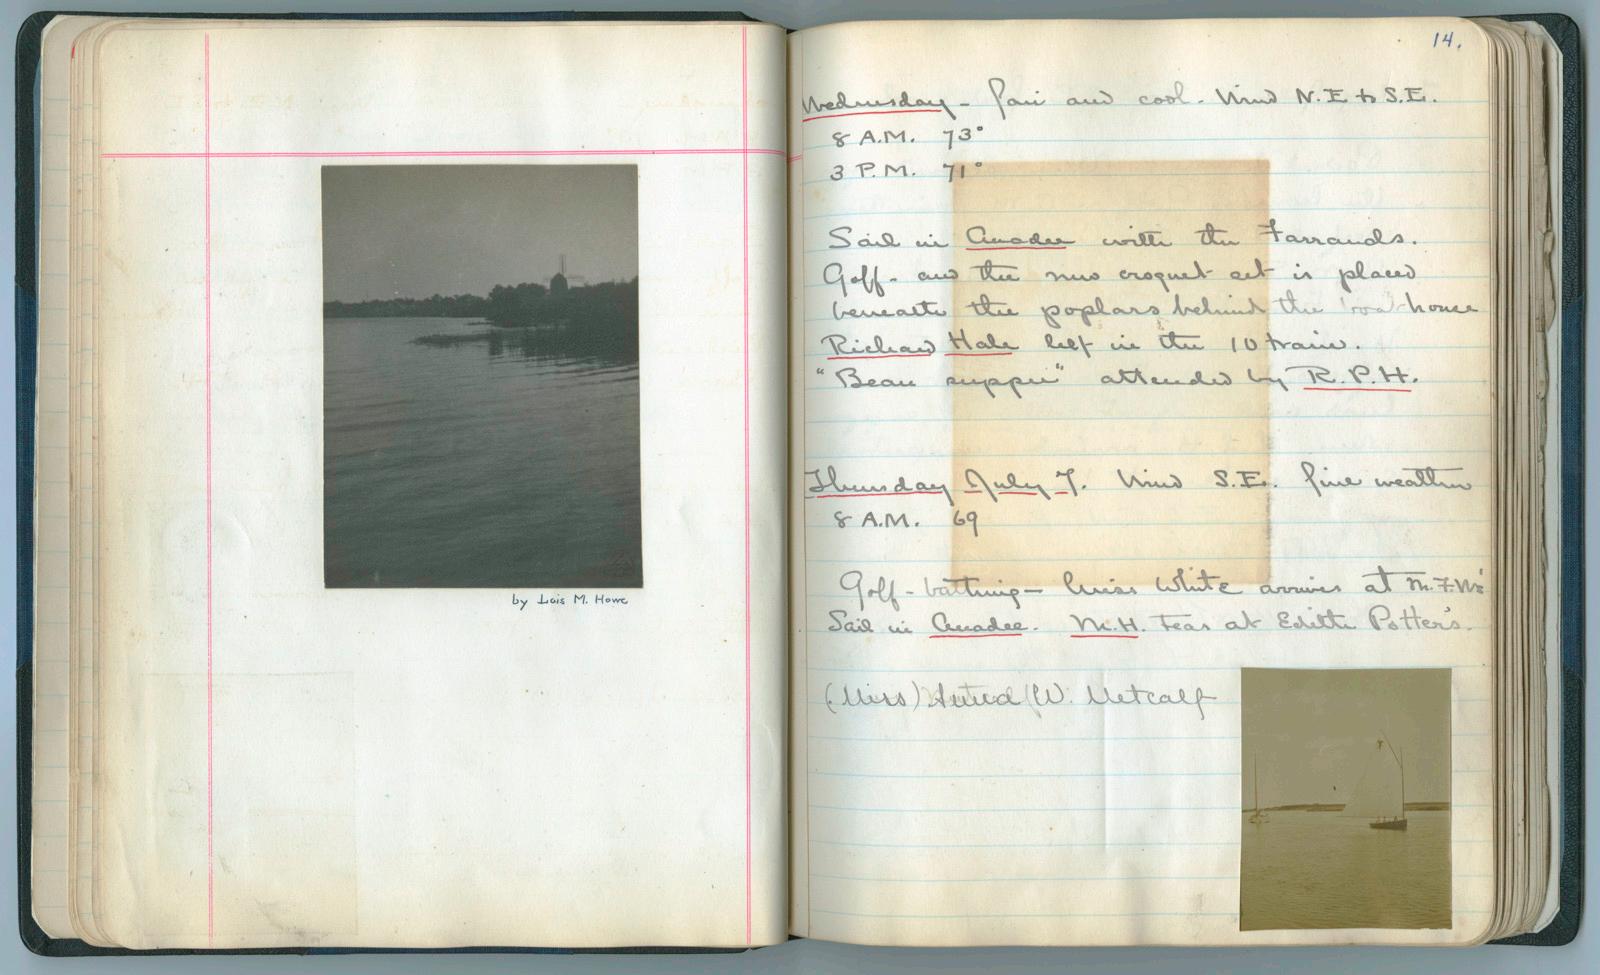 by Lois M. Howe
14.
Wednesday - fair and cool. Wind N.E to S.E.
8 A.M. 73°
3 P.M. 71°
Sail in with the Farrands.
Golf - and the new croquet set is placed
beneath the poplars behind the boat-house
Richard Hale left in the 10 train.
"Bean supper" attended by R.P.H.
Thursday July 7. Wind S.E. fine weather
8 A.M. 69
Golf - bathing - Miss White arrives at M.F.W's
Sail in M.H. Teas at Edith Potter's.
(Miss) W. Metcalf